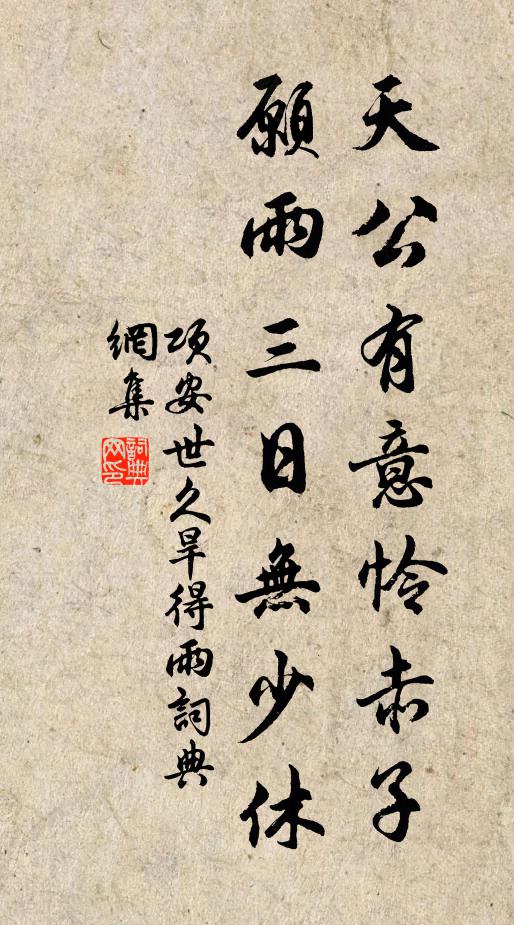 天公有意怜赤子
願雨三日無少休
項安世久旱得雨詞典
網集
詞典網印